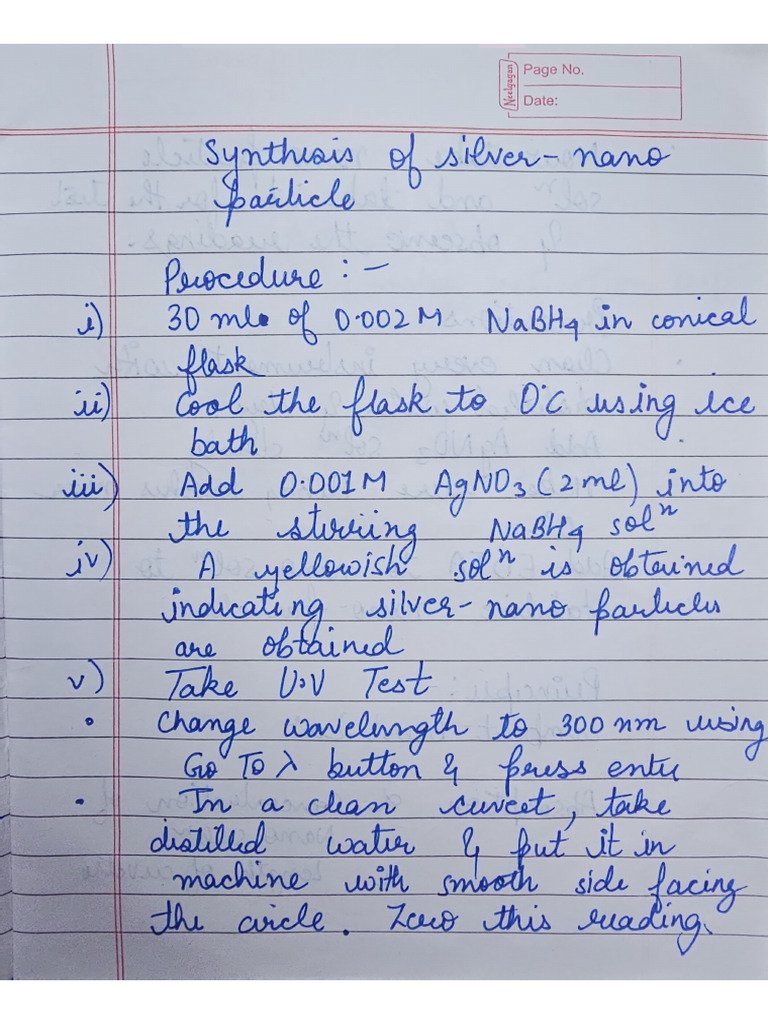 Neelgagan
Page No.
Date:
Synthesis of silver-nano
particle
Procedure :-
i) 30 ml of 0.002M NaBH4 in conical
flask
ii) Cool the flask to 0°C using ice
bath
iii) Add 0.001M AgNO3 (2ml) into
the stirring NaBH4 solⁿ
iv) A yellowish solⁿ is obtained
indicating silver-nano particles
are obtained
v) Take U.V Test
• Change wavelength to 300 nm using
Go To λ button & press enter
• In a clean cuveet, take
distilled water & put it in
machine with smooth side facing
the circle. Zero this reading.